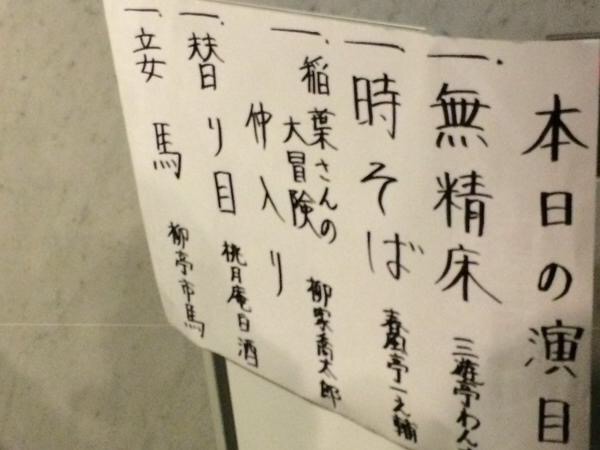 本日の演目
一.無精床 三遊亭わん
一.時そば 春風亭一之輔
一.稲葉さんの大冒険 柳家喬太郎
仲入り
一.替り目 桃月庵白酒
一.妾馬 柳亭市馬